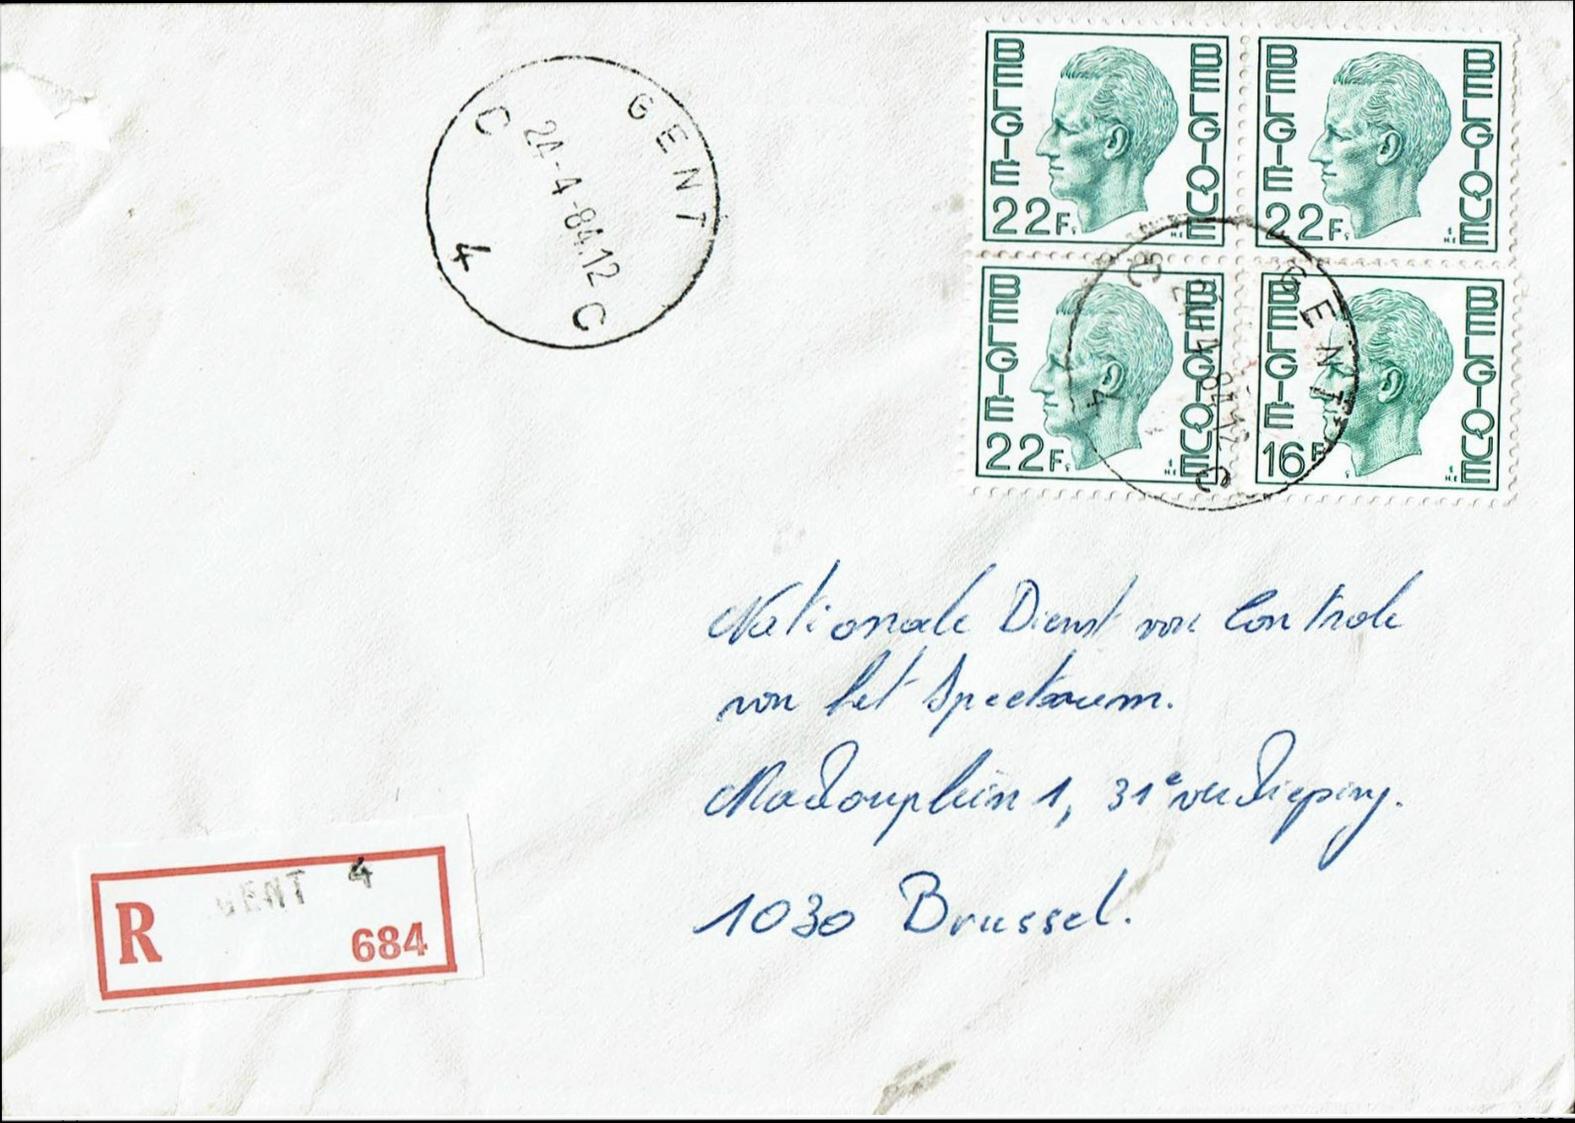 GENT
C 24-4-84.12 C
4
BELGIË BELGIQUE
22F
BELGIË BELGIQUE
22F
BELGIË BELGIQUE
22F
BELGIË BELGIQUE
16F
GENT
C 24-4-84.12 C
4
Nationale Dienst voor Controle
van het Spectrum.
Madouplein 1, 31e verdieping.
1030 Brussel.
R GENT 4
684